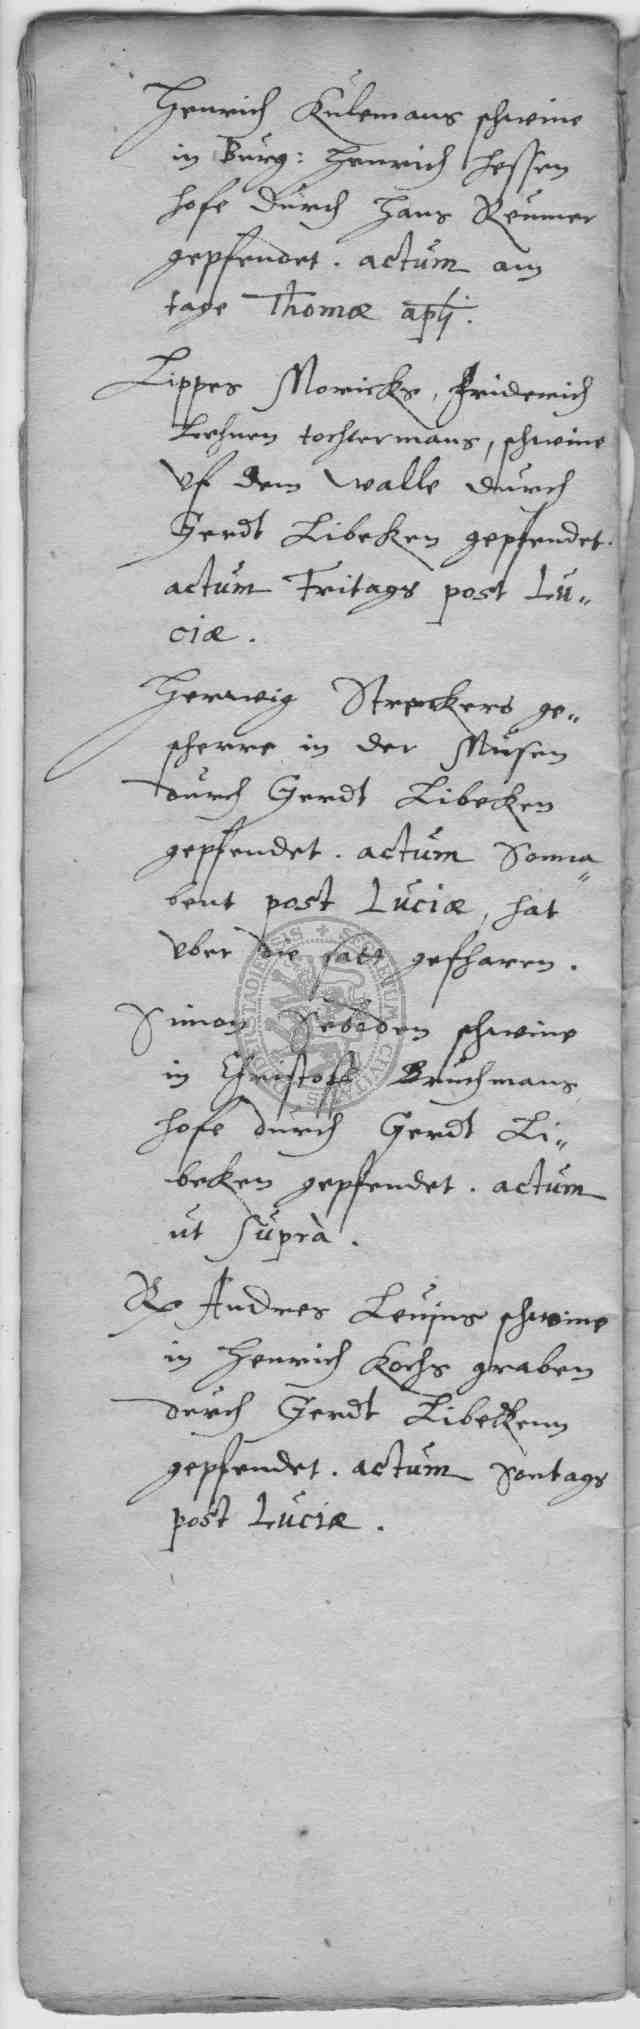 Henrich Külemans schweine
in Bürg: Henrich Hessen
hofe dürch Hans Reümer
gepfendet. actüm am
tage Thomæ apli.
Lippes Moricks, Friderich
Lehnen tochtermans, schweine
Vf dem walle dürch
Gerdt Libeken gepfendet.
actüm Fritags post Lü„
ciæ.
Herwig Streckers ge„
scherre in der Müsen
dürch Gerdt Libecken
gepfendet. actüm Sonna„
bent post Lüciæ, hat
vber die satt gefharen.
Simon schweine
in Christoff Brüchmans
hofe dürch Gerdt Li„
beken gepfendet. actüm
ut süprà.
Andres schweine
in Henrich Kochs graben
dürch Gerdt Libeckenn
gepfendet. actüm Sontags
post Lüciæ.